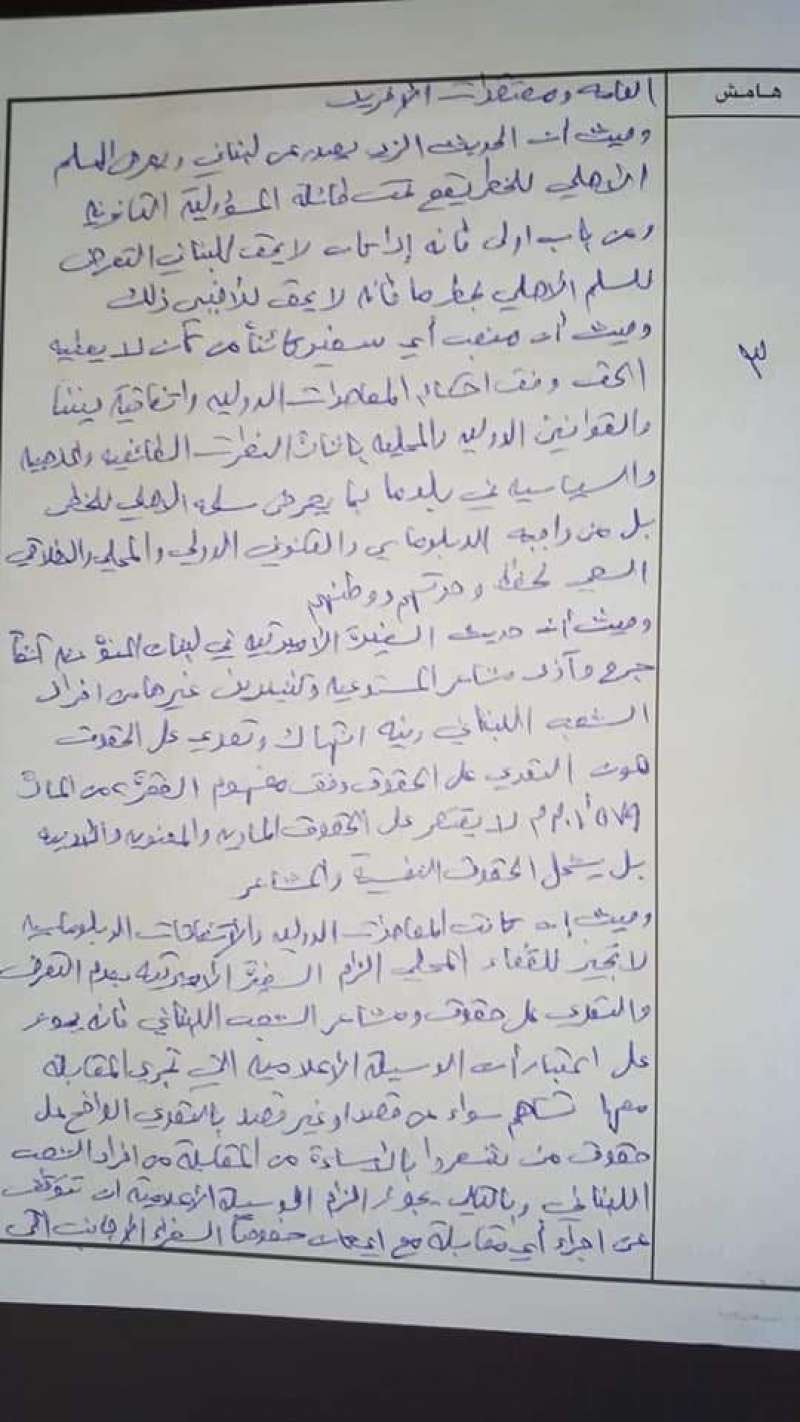 هامش
٣
العامه ومعتقدات الآخرين
وحيث أن الحديث الذي يصدر عن لبناني ويعرض السلم
الأهلي للخطر يقع تحت طائلة المسؤولية القانونيه
ومن باب اولى فانه إذا كان لا يحق للبناني التعرض
للسلم الاهلي بخطر ما فانه لا يحق للأجنبي ذلك
وحيث أن منصب أي سفير كائناً من كان لا يعطيه
الحق وفق احكام المعاهدات الدوليه واتفاقية فيننا
والقوانين الدوليه والمحليه باثارة النعرات الطائفيه والمذهبيه
والسياسيه في بلد ما بما يعرض سلمه الاهلي للخطر
بل من واجبه الدبلوماسي والقانوني الدولي والمحلي والاخلاقي
السعي لحفظ وحدتهم ووطنهم
وحيث أن حديث السفيرة الأميركيه في لبنان المنوه عنه آنفاً
جرح وآذى مشاعر المستدعيه وكثيرين غيرها من افراد
الشعب اللبناني وفيه انتهاك وتعدي على الحقوق
كون التعدي على الحقوق وفق مفهوم الفقرة ٢ من المادة
٥٧٩/أ.م.م لا يقتصر على الحقوق الماديه والمعنويه
بل يشمل الحقوق النفسية والمشاعر
وحيث إن كانت المعاهدات الدوليه والاتفاقات الدبلوماسيه
لا تجيز للقضاء المحلي الزام السفيرة الأميركيه بعدم التعرض
والتعدي على حقوق ومشاعر الشعب اللبناني فانه يعود
على اعتبار أن الوسيلة الأعلامية التي تجري المقابلة
معها تساهم سواء عن قصد او غير قصد بالتعدي الواضح على
حقوق من شعروا بالإساءة من المقابلة من افراد الشعب
اللبناني وبالتالي يجوز الزام الوسيلة الأعلامية ان تتوقف
عن اجراء أي مقابلة مع السفراء الاجانب التي